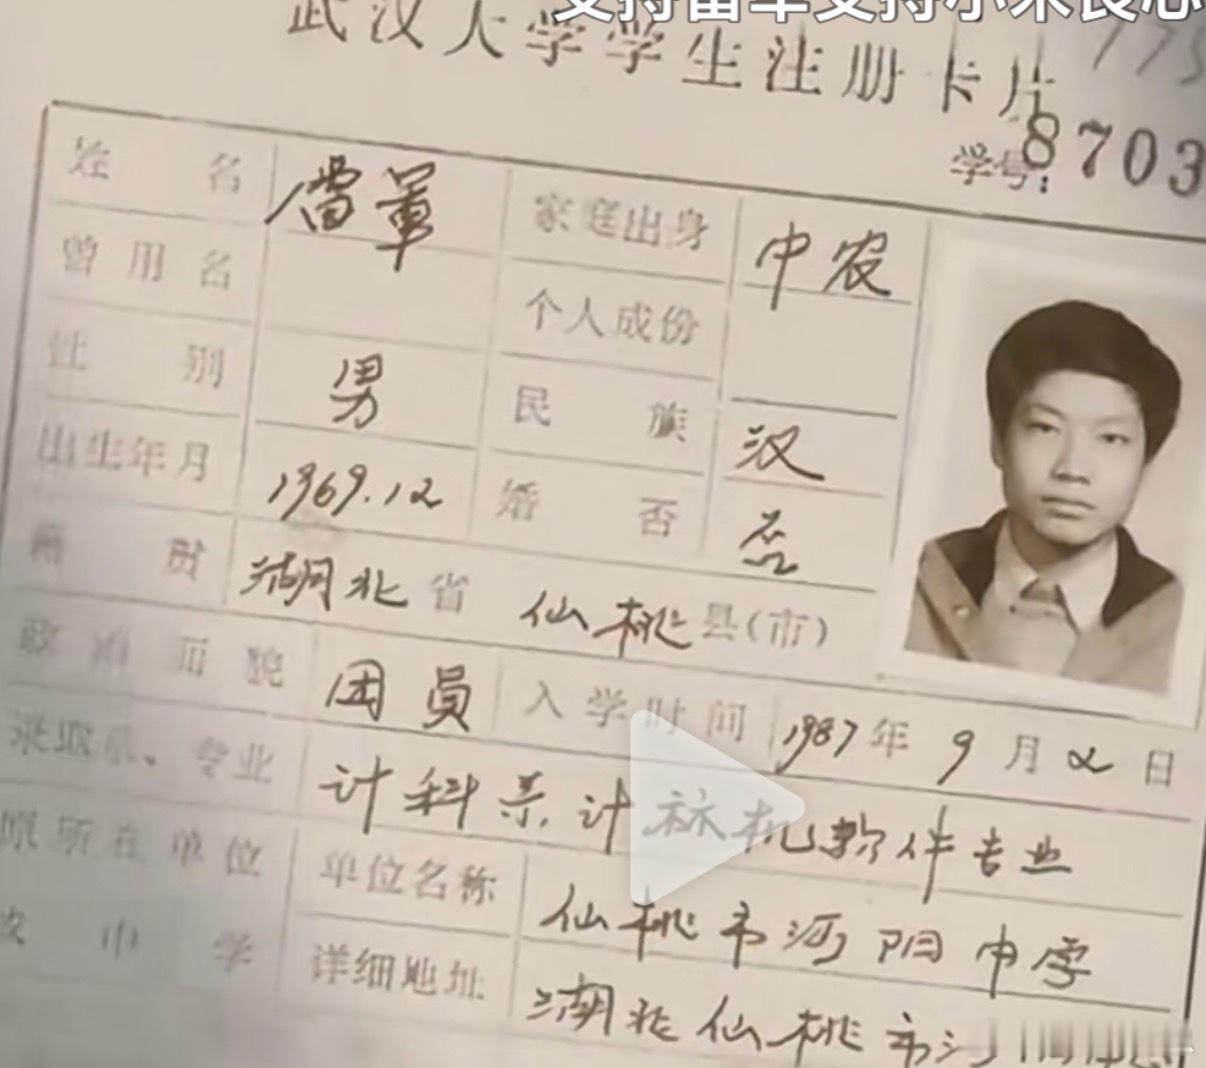 支持雷军支持小米良心
武汉大学学生注册卡片
学号: 8703
姓名 雷军 家庭出身 中农
曾用名 个人成份
性别 男 民族 汉
出生年月 1969.12 婚否 否
籍贯 湖北省 仙桃县(市)
政治面貌 团员 入学时间 1987年9月2日
录取系、专业 计科系计算机软件专业
原所在单位 单位名称 仙桃市沔阳中学
中学 详细地址 湖北仙桃市